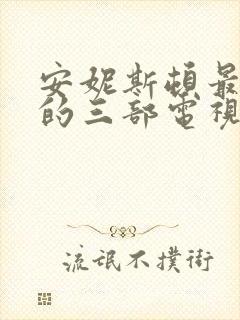 安妮斯頓最
的三部電視
流氓不撲街